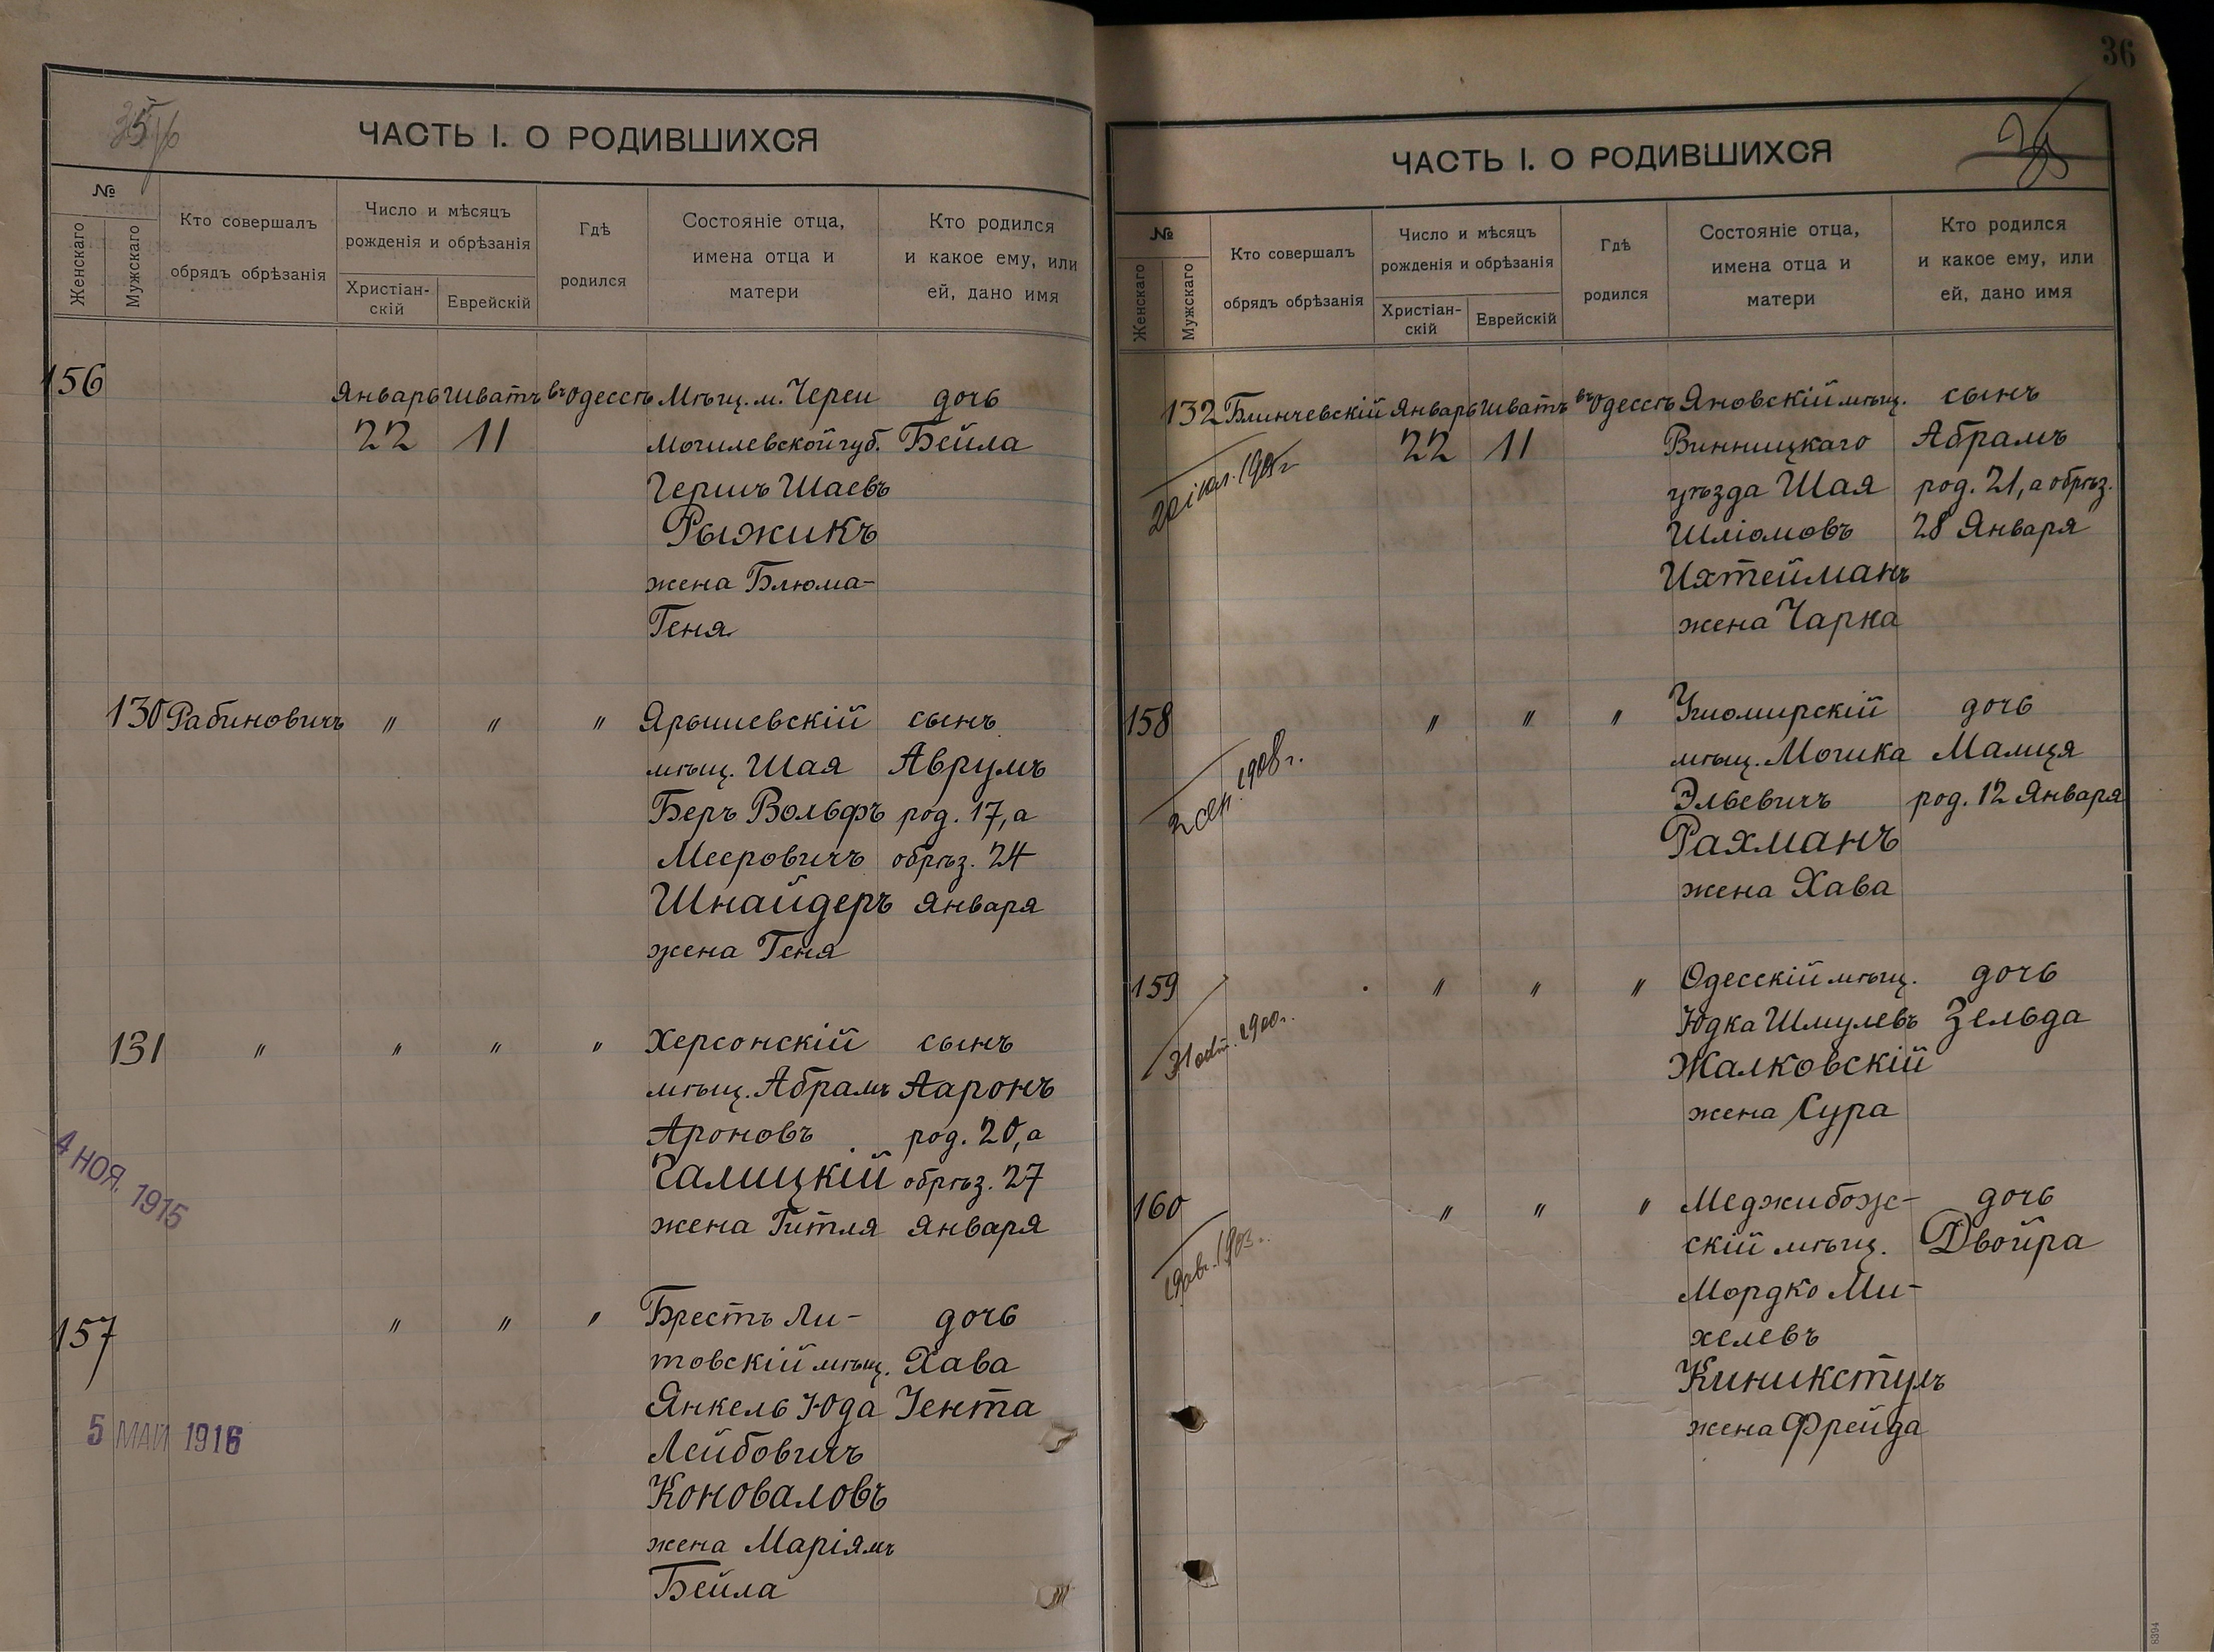 ЧАСТЬ I. О РОДИВШИХСЯ
№
Женскаго
Мужскаго
Кто совершалъ
обрядъ обрѣзанія
Число и мѣсяцъ
рожденія и обрѣзанія
Христіан-
скій
Еврейскій
Гдѣ
родился
Состояніе отца,
имена отца и
матери
Кто родился
и какое ему, или
ей, дано имя
156
Январь Шватъ въ Одессѣ Мѣщ. м. Череи дочь
22 11 Могилевской губ. Бейла
Гершъ Шаевъ
Рыжикъ
жена Блюма-
Геня
130 Рабиновичъ " " " Ярышевскій сынъ
мѣщ. Шая Аврумъ
Беръ Вольфъ род. 17, а
Мееровичъ обрѣз. 24
Шнайдеръ Января
жена Геня
131 " " " " Херсонскій сынъ
мѣщ. Абрамъ Ааронъ
Ароновъ род. 20, а
Галицкій обрѣз. 27
жена Гитля Января
4 НОЯ. 1915
157 " " " Брестъ Ли- дочь
товскій мѣщ. Хава
Янкель Юда Іента
Лейбовичъ
Коноваловъ
жена Маріямъ
Бейла
5 МАЙ 1916
36
ЧАСТЬ I. О РОДИВШИХСЯ
№
Женскаго
Мужскаго
Кто совершалъ
обрядъ обрѣзанія
Число и мѣсяцъ
рожденія и обрѣзанія
Христіан-
скій
Еврейскій
Гдѣ
родился
Состояніе отца,
имена отца и
матери
Кто родился
и какое ему, или
ей, дано имя
132 Блинчевскій Январь Шватъ въ Одессѣ Яновскій мѣщ. сынъ
22 11 Винницкаго Абрамъ
уѣзда Шая род. 21, а обрѣз.
Шліомовъ 28 Января
Ихтейманъ
жена Чарна
158 " " " Ушомирскій дочь
мѣщ. Мошка Малця
Эльевичъ род. 12 Января
Рахманъ
жена Хава
2 сен. 1908 г.
159 " " " Одесскій мѣщ. дочь
Юдка Шмулевъ Зельда
Жалковскій
жена Сура
160 " " " Меджибож- дочь
скій мѣщ. Двойра
Мордко Ми-
хелевъ
Киникстулъ
жена Фрейда
8394